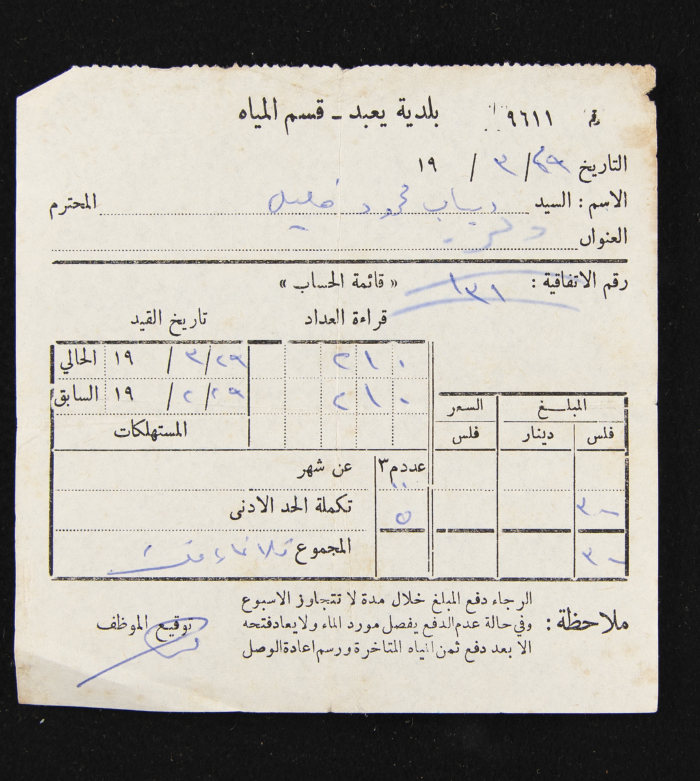 رقم ٩٦١١
بلدية يعبد - قسم المياه
التاريخ ٢٩/ ٣ / ١٩
الاسم : السيد ذياب محمود خليل المحترم
العنوان
رقم الاتفاقية : ١٣١
« قائمة الحساب »
قراءة العداد تاريخ القيد
٢١٠ ٢٩/ ٣ / ١٩ الحالي
٢١٠ ٢٩/ ٢ / ١٩ السابق
المستهلكات
المبلغ السعر
فلس دينار فلس
عدد م٣ عن شهر
٣٠٠ ٥ تكملة الحد الادنى
٣٠٠ المجموع ثلاثماية فلس
ملاحظة : الرجاء دفع المبلغ خلال مدة لا تتجاوز الاسبوع
وفي حالة عدم الدفع يفصل مورد الماء ولا يعاد فتحه
الا بعد دفع ثمن المياه المتاخرة ورسم اعادة الوصل
توقيع الموظف